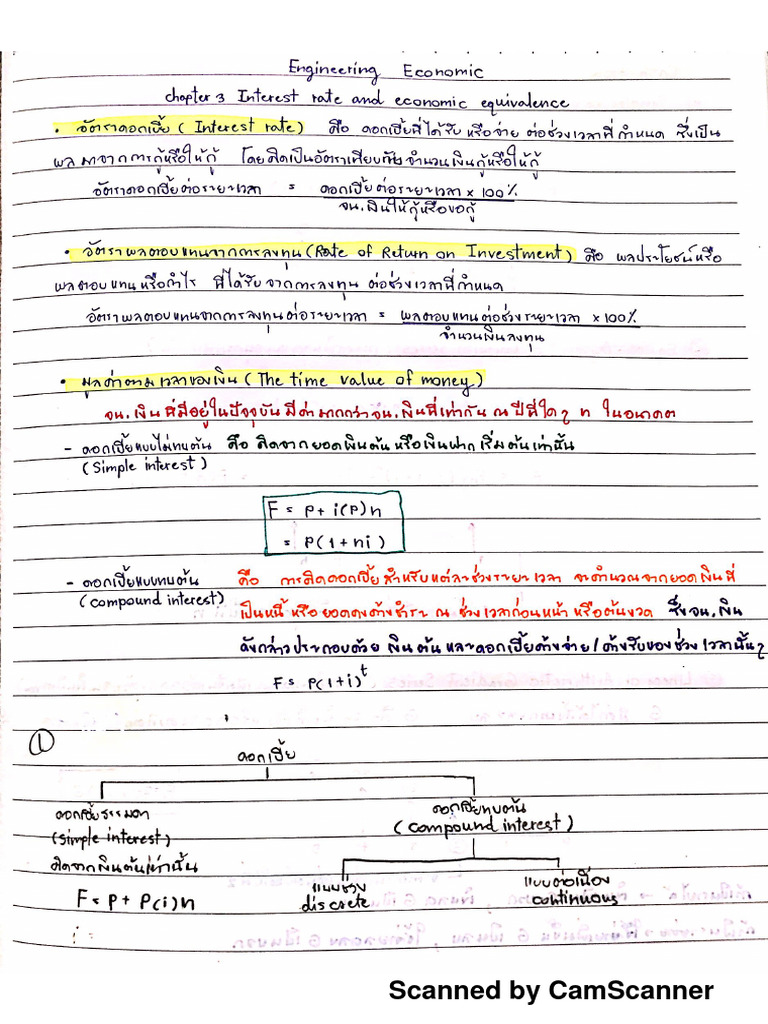 Engineering Economic
chapter 3 Interest rate and economic equivalence
• อัตราดอกเบี้ย ( Interest rate ) คือ ดอกเบี้ยที่ได้รับ หรือจ่าย ต่อช่วงเวลาที่กำหนด ซึ่งเป็น
ผลมาจากการกู้หรือให้กู้ โดยคิดเป็นอัตราเทียบกับจำนวนเงินกู้หรือให้กู้
อัตราดอกเบี้ยต่อระยะเวลา = ดอกเบี้ยต่อระยะเวลา x 100%
จน.เงินให้กู้หรือขอกู้
• อัตราผลตอบแทนจากการลงทุน (Rate of Return on Investment) คือ ผลประโยชน์หรือ
ผลตอบแทนหรือกำไร ที่ได้รับจากการลงทุน ต่อช่วงเวลาที่กำหนด
อัตราผลตอบแทนจากการลงทุนต่อระยะเวลา = ผลตอบแทนต่อช่วงระยะเวลา x 100%
จำนวนเงินลงทุน
• มูลค่าตามเวลาของเงิน ( The time value of money )
จน.เงินที่มีอยู่ในปัจจุบันมีค่ามากกว่าจน.เงินที่เท่ากัน ณ ปีที่ใดๆ n ในอนาคต
- ดอกเบี้ยแบบไม่ทบต้น คือ คิดจากยอดเงินต้นหรือเงินฝากเริ่มต้นเท่านั้น
( Simple interest )
F = P + i(P)n
= P(1+ni)
- ดอกเบี้ยแบบทบต้น คือ การคิดดอกเบี้ยสำหรับแต่ละช่วงระยะเวลา จะคำนวณจากยอดเงินที่
( compound interest ) เป็นหนี้ หรือยอดคงค้างชำระ ณ ช่วงเวลาก่อนหน้า หรือต้นงวด ซึ่งจน.เงิน
ดังกล่าวประกอบด้วย เงินต้น และดอกเบี้ยค้างจ่าย/ค้างรับของช่วงเวลานั้นๆ
F = P(1+i)^t
①
ดอกเบี้ย
ดอกเบี้ยธรรมดา ดอกเบี้ยทบต้น
(Simple interest) ( compound interest )
คิดจากเงินต้นเท่านั้น
แบบช่วง แบบต่อเนื่อง
discrete continuous
F = P + P(i)n
Scanned by CamScanner